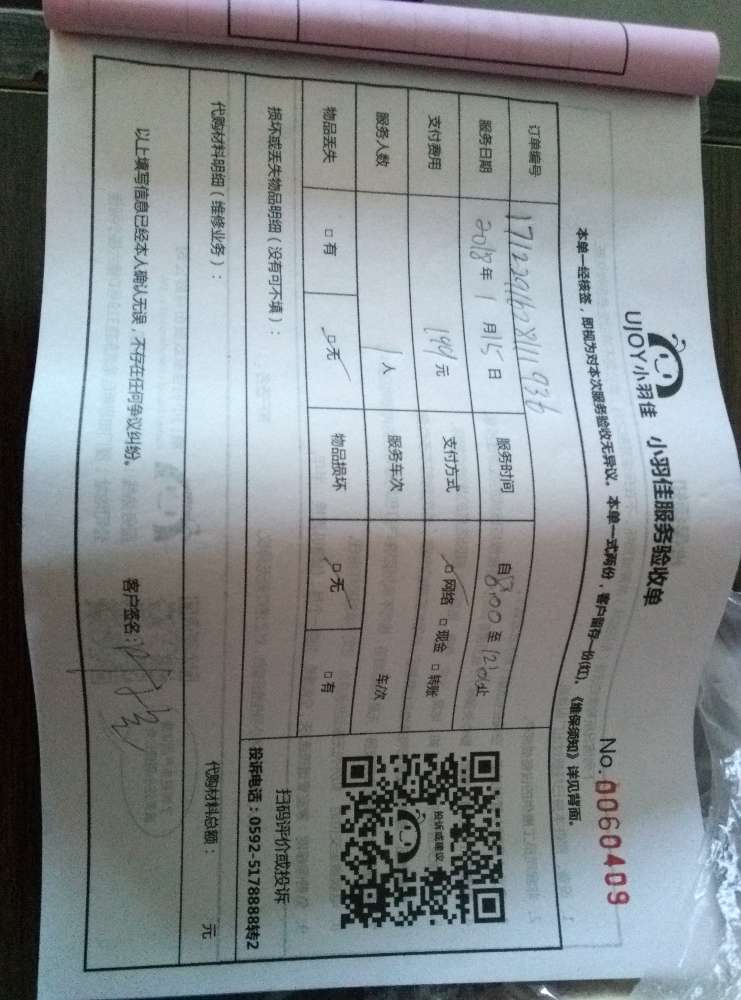 UJOY小羽佳 小羽佳服务验收单
No. 0060409
本单一经核签，即视为对本次服务验收无异议。本单一式两份，客户留存一份(红)，《维保须知》详见背面。
订单编号
服务日期 2018年 1 月 15 日 服务时间 自 8:00 至 12:00 止
支付费用 199 元 支付方式 □ 网络 □ 现金 □ 转账
服务人数 1 人 服务车次 车/次
物品丢失 □ 有 □ 无 物品损坏 □ 无 □ 有
投诉或建议
扫码评价或投诉
投诉电话：0592-5178888转2
损坏或丢失物品明细（没有可不填）：
代购材料明细（维修业务）：
代购材料总额： 元
以上填写信息已经本人确认无误，不存在任何争议纠纷。 客户签名：